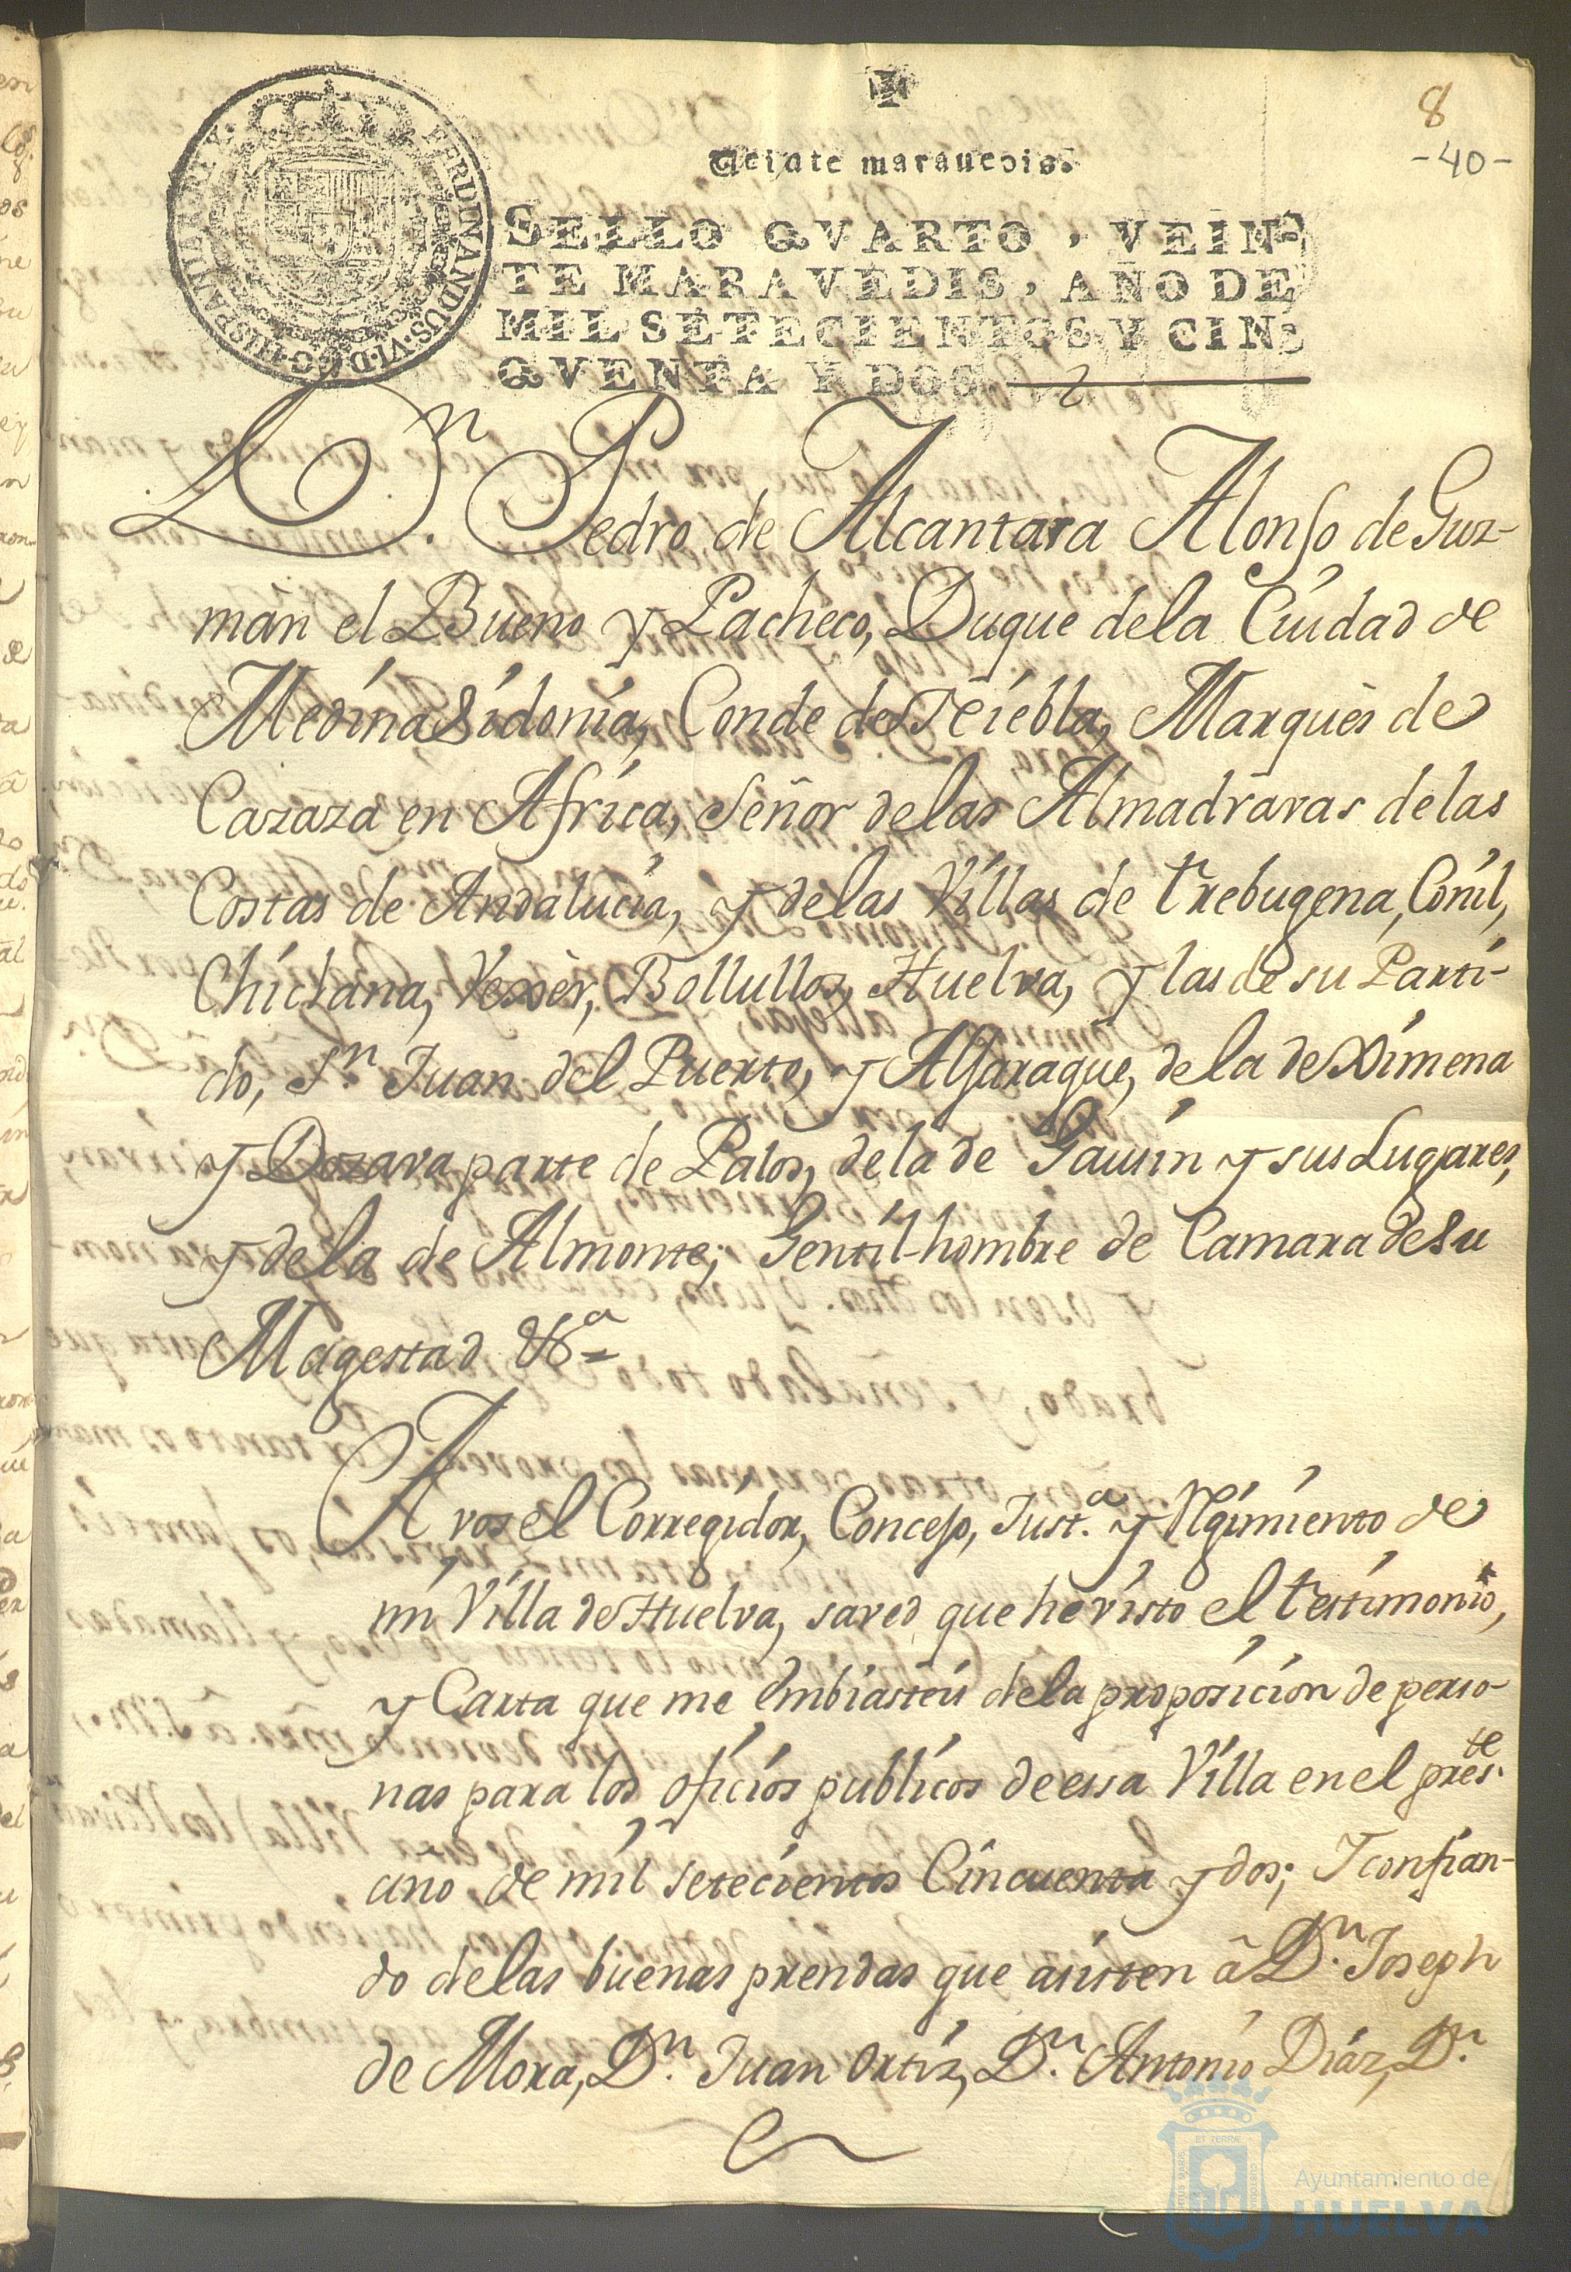 8
-40-
Veinte marauedis.
SELLO QVARTO, VEIN-
TE MARAVEDIS, AÑO DE
MIL SETECIENTOS Y CIN-
QVENTA Y DOS
FERDINANDUS·VI·D·G·HISPANIAR·REX·
Dn. Pedro de Alcantara Alonso de Guz-
màn el Bueno y Pacheco, Duque dela Ciudad de
Medina Sidonia, Conde de Niebla, Marquès de
Cazaza en Africa, Señor delas Almadravas delas
Costas de Andalucia, y delas Villas de trebugena, Conil,
Chiclana, Vexèr, Bollullos, Huelva, y las de su Parti-
do, Sn. Juan del Puerto, y Aljaraque, dela de Ximena
y Dozava parte de Palos, dela de Gausin y sus Lugares,
y dela de Almonte; Gentil-hombre de Camara de Su
Magestad &a
A vos el Corregidor, Concejo, Just.a y Rgimiento de
mi Villa de Huelva, saved que he visto el testimonio,
y Carta que me embiasteis dela proposicion de perso-
nas para los oficios publicos de essa Villa en el pres.te
año de mil setecientos Cincuenta y dos; Y confian-
do delas buenas prendas que asisten â Dn. Joseph
de Mora, Dn. Juan Ortiz, Dn. Antonio Diaz, Dn.
Ayuntamiento de
HUELVA